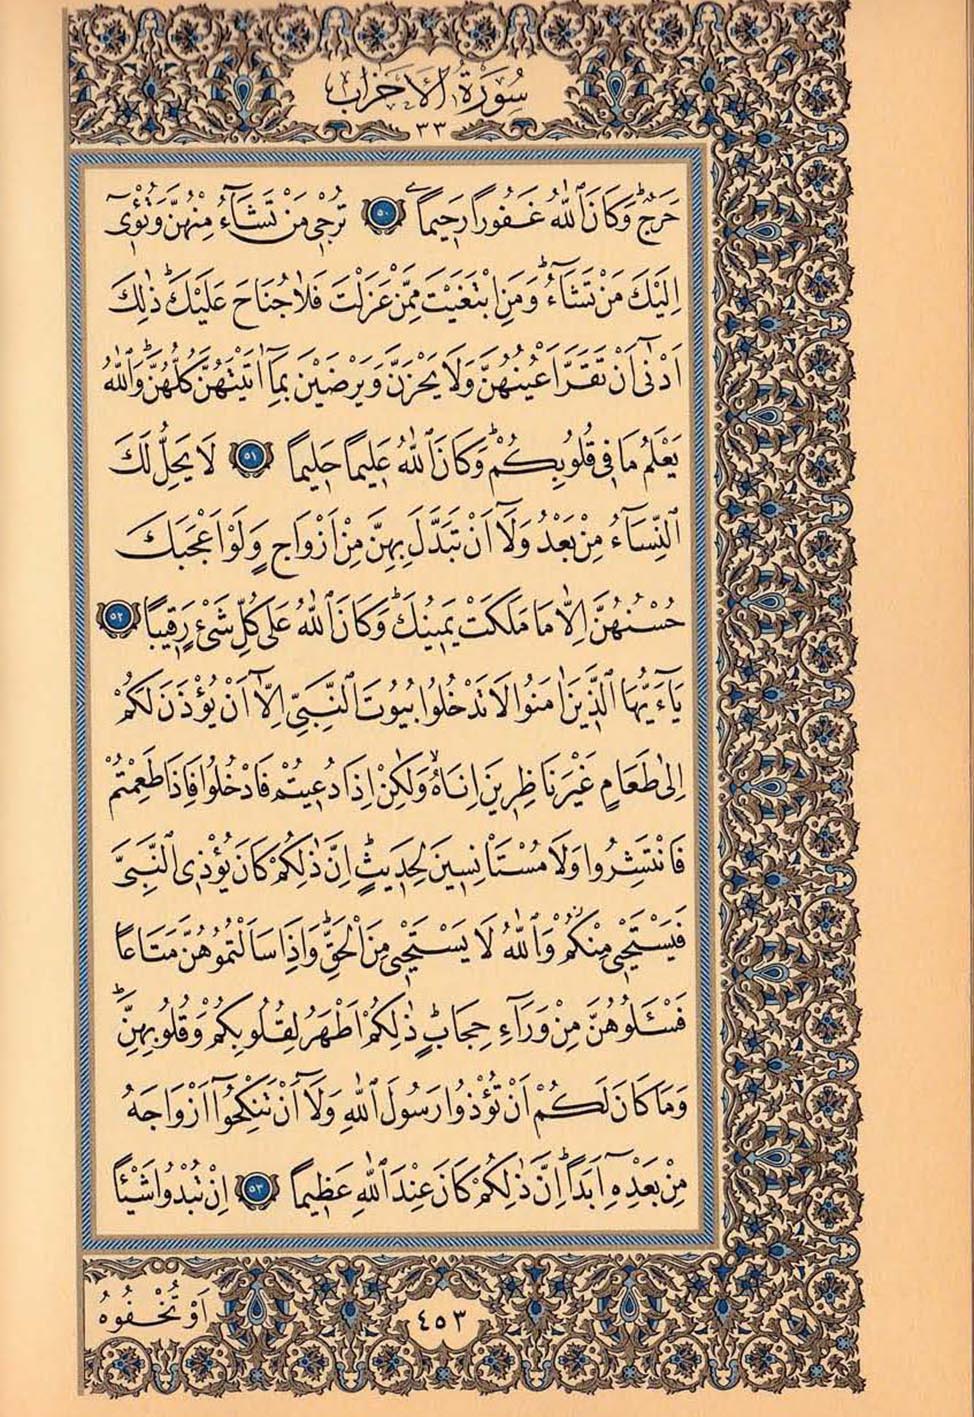 سُورَةُ الْاَحْزَابِ
٣٣
حَرَجٌۜ وَكَانَ اللّٰهُ غَفُورًا رَحِيمًا ﴿٥٠﴾ تُرْجِي مَنْ تَشَٓاءُ مِنْهُنَّ وَتُـْٔوِٓي
اِلَيْكَ مَنْ تَشَٓاءُۜ وَمَنِ ابْتَغَيْتَ مِمَّنْ عَزَلْتَ فَلَا جُنَاحَ عَلَيْكَۜ ذٰلِكَ
اَدْنٰٓى اَنْ تَقَرَّ اَعْيُنُهُنَّ وَلَا يَحْزَنَّ وَيَرْضَيْنَ بِمَٓا اٰتَيْتَهُنَّ كُلُّهُنَّۜ وَاللّٰهُ
يَعْلَمُ مَا فِي قُلُوبِكُمْۜ وَكَانَ اللّٰهُ عَلِيمًا حَلِيمًا ﴿٥١﴾ لَا يَحِلُّ لَكَ
النِّسَٓاءُ مِنْ بَعْدُ وَلَٓا اَنْ تَبَدَّلَ بِهِنَّ مِنْ اَزْوَاجٍ وَلَوْ اَعْجَبَكَ
حُسْنُهُنَّ اِلَّا مَا مَلَكَتْ يَمِينُكَۜ وَكَانَ اللّٰهُ عَلٰى كُلِّ شَيْءٍ رَقِيبًا ﴿٥٢﴾
يَٓا اَيُّهَا الَّذِينَ اٰمَنُوا لَا تَدْخُلُوا بُيُوتَ النَّبِيِّ اِلَّٓا اَنْ يُؤْذَنَ لَكُمْ
اِلٰى طَعَامٍ غَيْرَ نَاظِرِينَ اِنٰيهُۙ وَلٰكِنْ اِذَا دُعِيتُمْ فَادْخُلُوا فَاِذَا طَعِمْتُمْ
فَانْتَشِرُوا وَلَا مُسْتَأْنِسِينَ لِحَدِيثٍۜ اِنَّ ذٰلِكُمْ كَانَ يُؤْذِي النَّبِيَّ
فَيَسْتَحْيِ مِنْكُمْۘ وَاللّٰهُ لَا يَسْتَحْيِ مِنَ الْحَقِّۜ وَاِذَا سَاَلْتُمُوهُنَّ مَتَاعًا
فَسْـَٔلُوهُنَّ مِنْ وَرَٓاءِ حِجَابٍۜ ذٰلِكُمْ اَطْهَرُ لِقُلُوبِكُمْ وَقُلُوبِهِنَّۜ
وَمَا كَانَ لَكُمْ اَنْ تُؤْذُوا رَسُولَ اللّٰهِ وَلَٓا اَنْ تَنْكِحُٓوا اَزْوَاجَهُ
مِنْ بَعْدِهِٓ اَبَدًاۜ اِنَّ ذٰلِكُمْ كَانَ عِنْدَ اللّٰهِ عَظِيمًا ﴿٥٣﴾ اِنْ تُبْدُوا شَيْـًٔا
اَوْ تُخْفُوهُ
٤٥٣